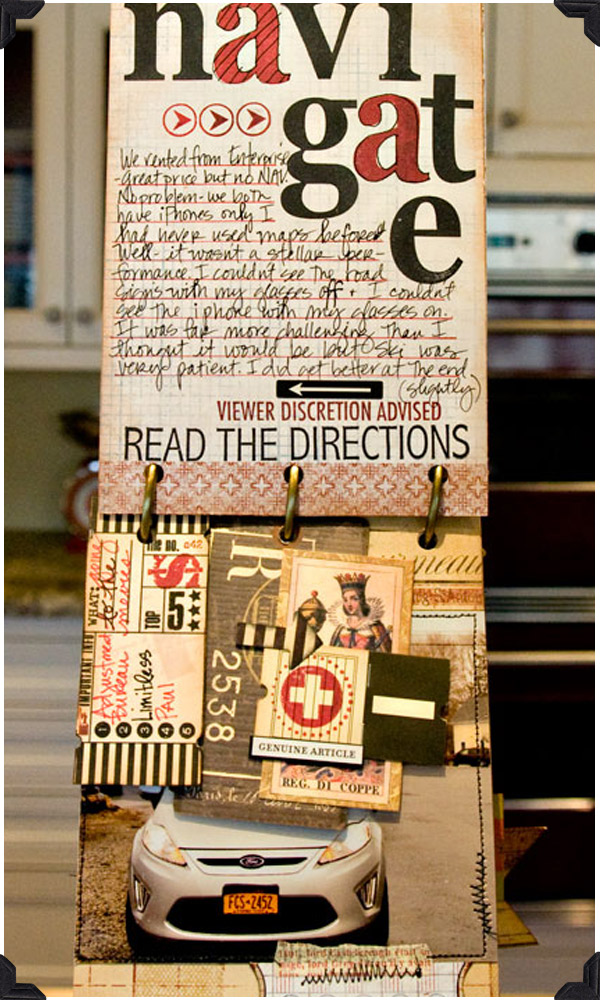 navi
gat
e
We rented from Enterprise
-Great price but no NAV.
No problem-we both
have iPhones only I
had never used maps before!
Well- it wasn't a stellar per-
formance. I couldn't see the road
signs with my glasses off + I couldn't
see the iphone with my glasses on.
It was far more challenging than I
thought it would be but Ski was
very patient. I did get better at the end.
(slightly)
VIEWER DISCRETION ADVISED
READ THE DIRECTIONS
IMPORTANT INFO
WHAT:
to the movies
file no. 642
$
TOP 5
1 Adjustment
2 Bureau
3 Limitless
4 Paul
5
R
2538
GENUINE ARTICLE
REG. DI COPPE
Ford
FCS-2452